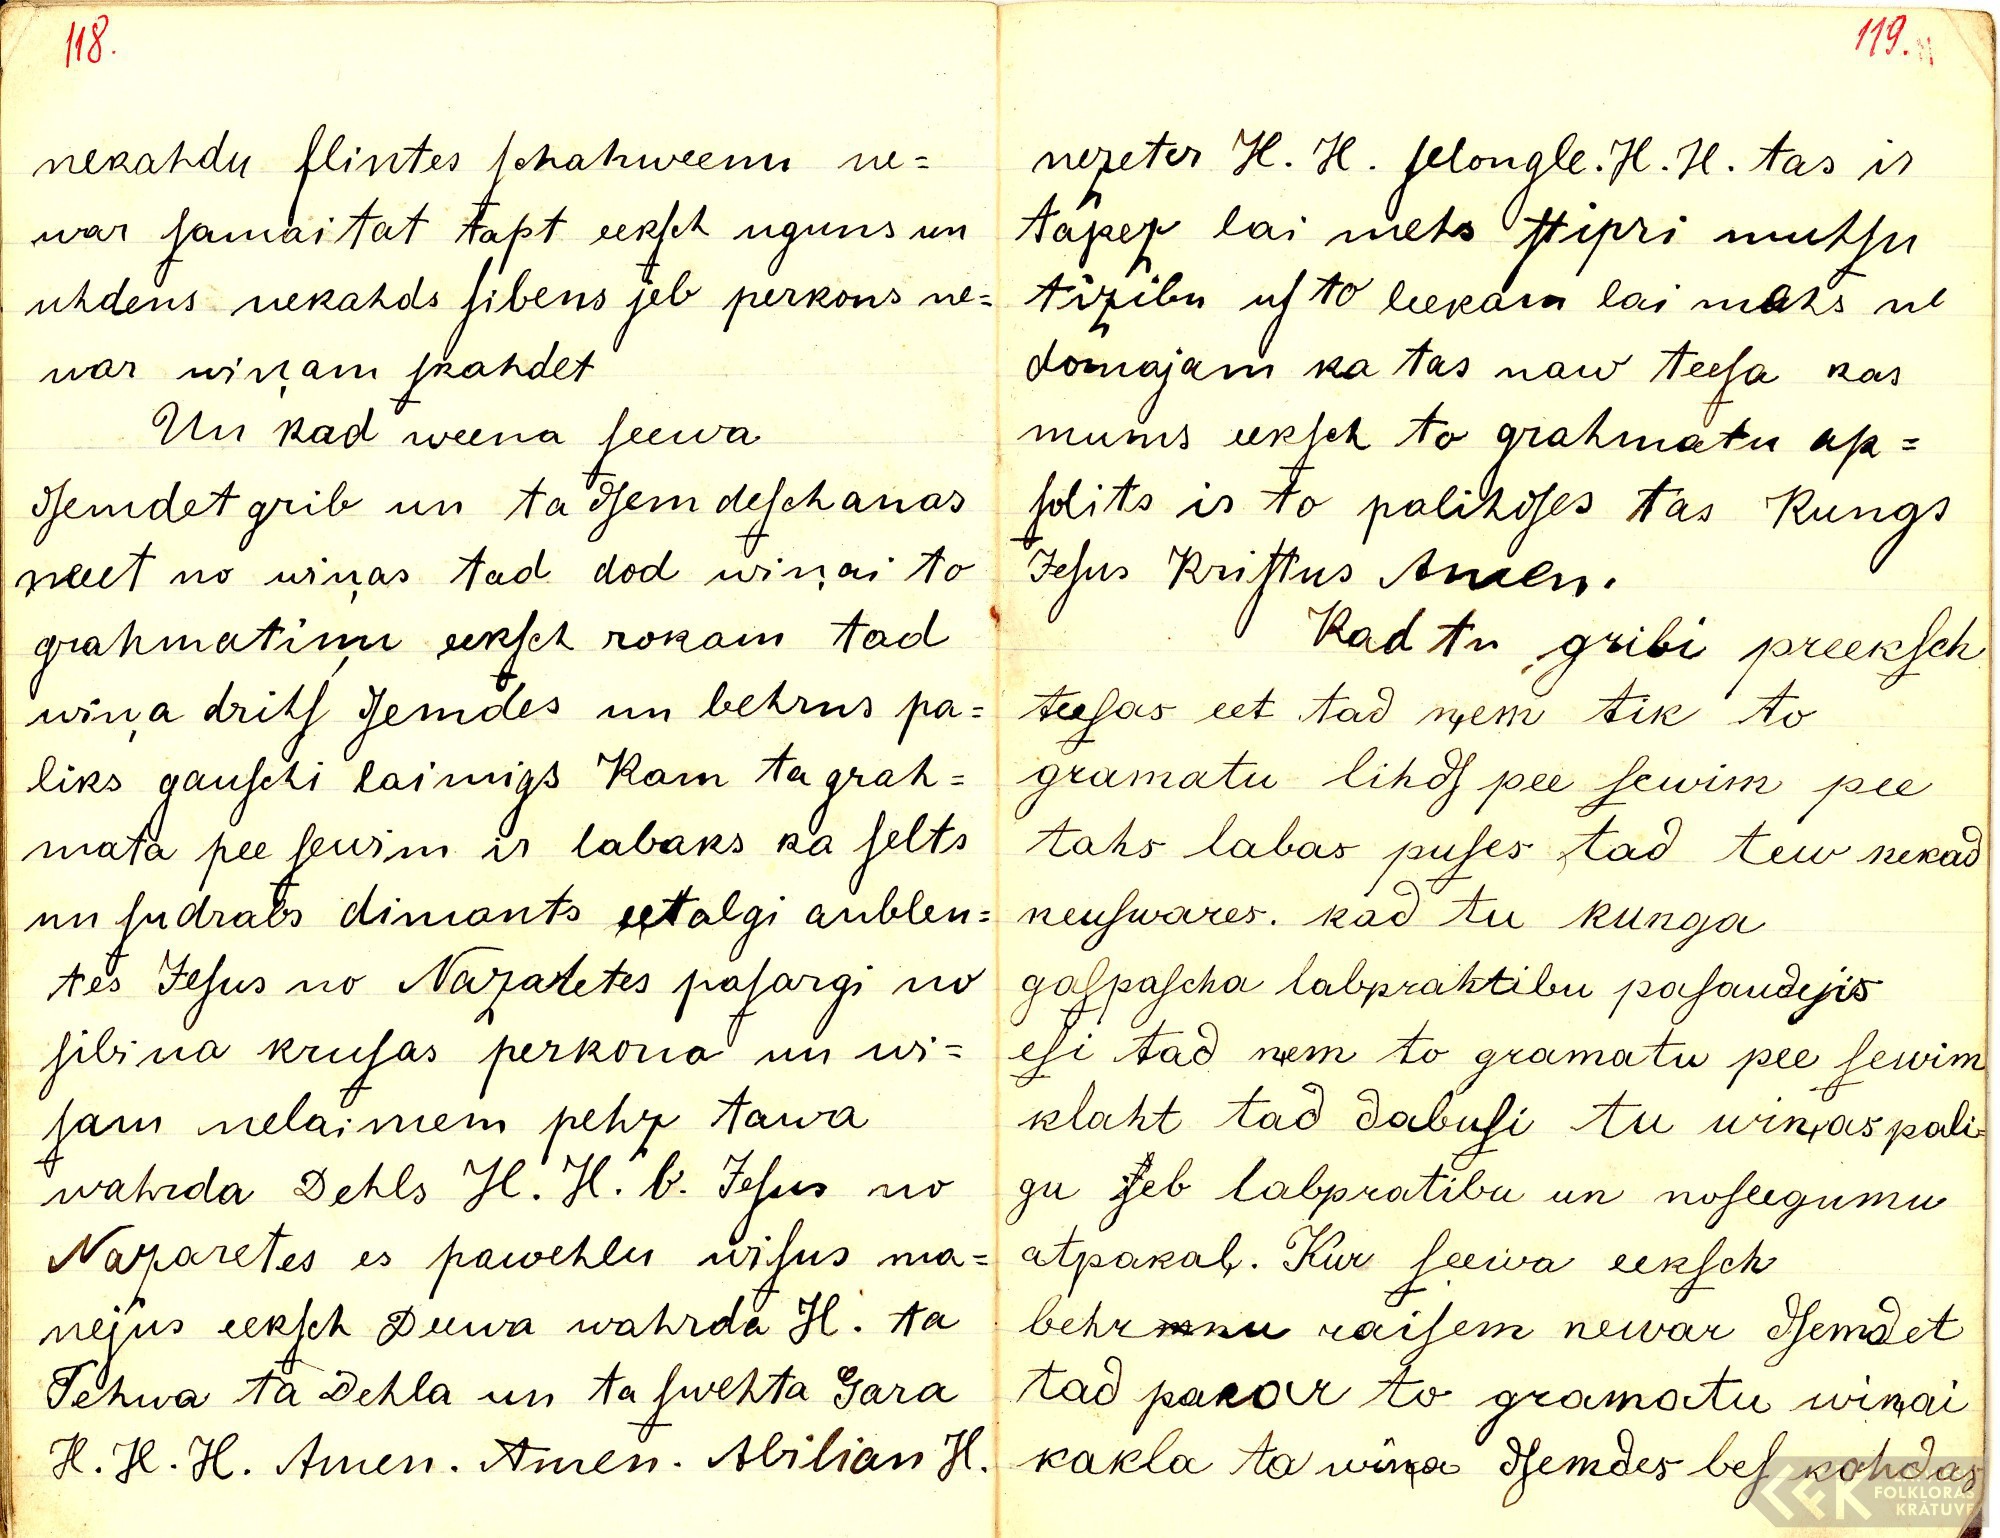 118.
nekahdu flintes ſchahweenu ne=
war ſamaitat tapt eekſch uguns un
uhdens nekahds ſibens jeb perkons ne=
war wiņam ſkahdet
Un kad weena ſeewa
dſemdet grib un ta dſemdeſchanas
neeet no wiņas tad dod wiņai to
grahmatiņu eekſch rokam tad
wiņa drihſ dſemdes un behrns pa=
liks gauſchi laimigs Kam ta grah=
mata pee ſewim ir labaks ka ſelts
un ſudrabs dimants eetalgi aublen=
tes Jeſus no Nazaretes paſargi no
ſibina kruſas perkona un wi=
ſam nelaimem pehz tawa
wahrda Dehls H. H. b. Jeſus no
Nazaretes es pawehlu wiſus ma=
nejus eekſch Deewa wahrda H. ta
Tehwa ta Dehla un ta ſwehta Gara
H. H. H. Amen. Amen. Abilian H.
119.
nezeter H. H. ſelongle. H. H. tas ir
tapez lai mehs ſtipri muhſu
tizibu uſ to leekam lai mahs ne
domajam ka tas naw teeſa kas
mums eekſch to grahmatu ap=
ſolits ir to palihdſes tas Kungs
Jeſus Kriſtus Amen.
Kad tu gribi preekſch
teeſas eet tad ņem tik to
gramatu lihdſ pee ſewim pee
tahs labas puſes tad tew nekad
neuſwares. kad tu kunga
gaſpaſcha labprahtibu paſaudejis
eſi tad ņem to gramatu pee ſewim
klaht tad dabuſi tu wiņas pali=
gu jeb labpratibu un noſeegumu
atpakaļ. Kur ſeewa eekſch
behrnu raiſem newar dſemdet
tad pakar to gramatu wiņai
kakla ta wiņa dſemdes beſ kahdas
FOLKLORAS
KRĀTUVE